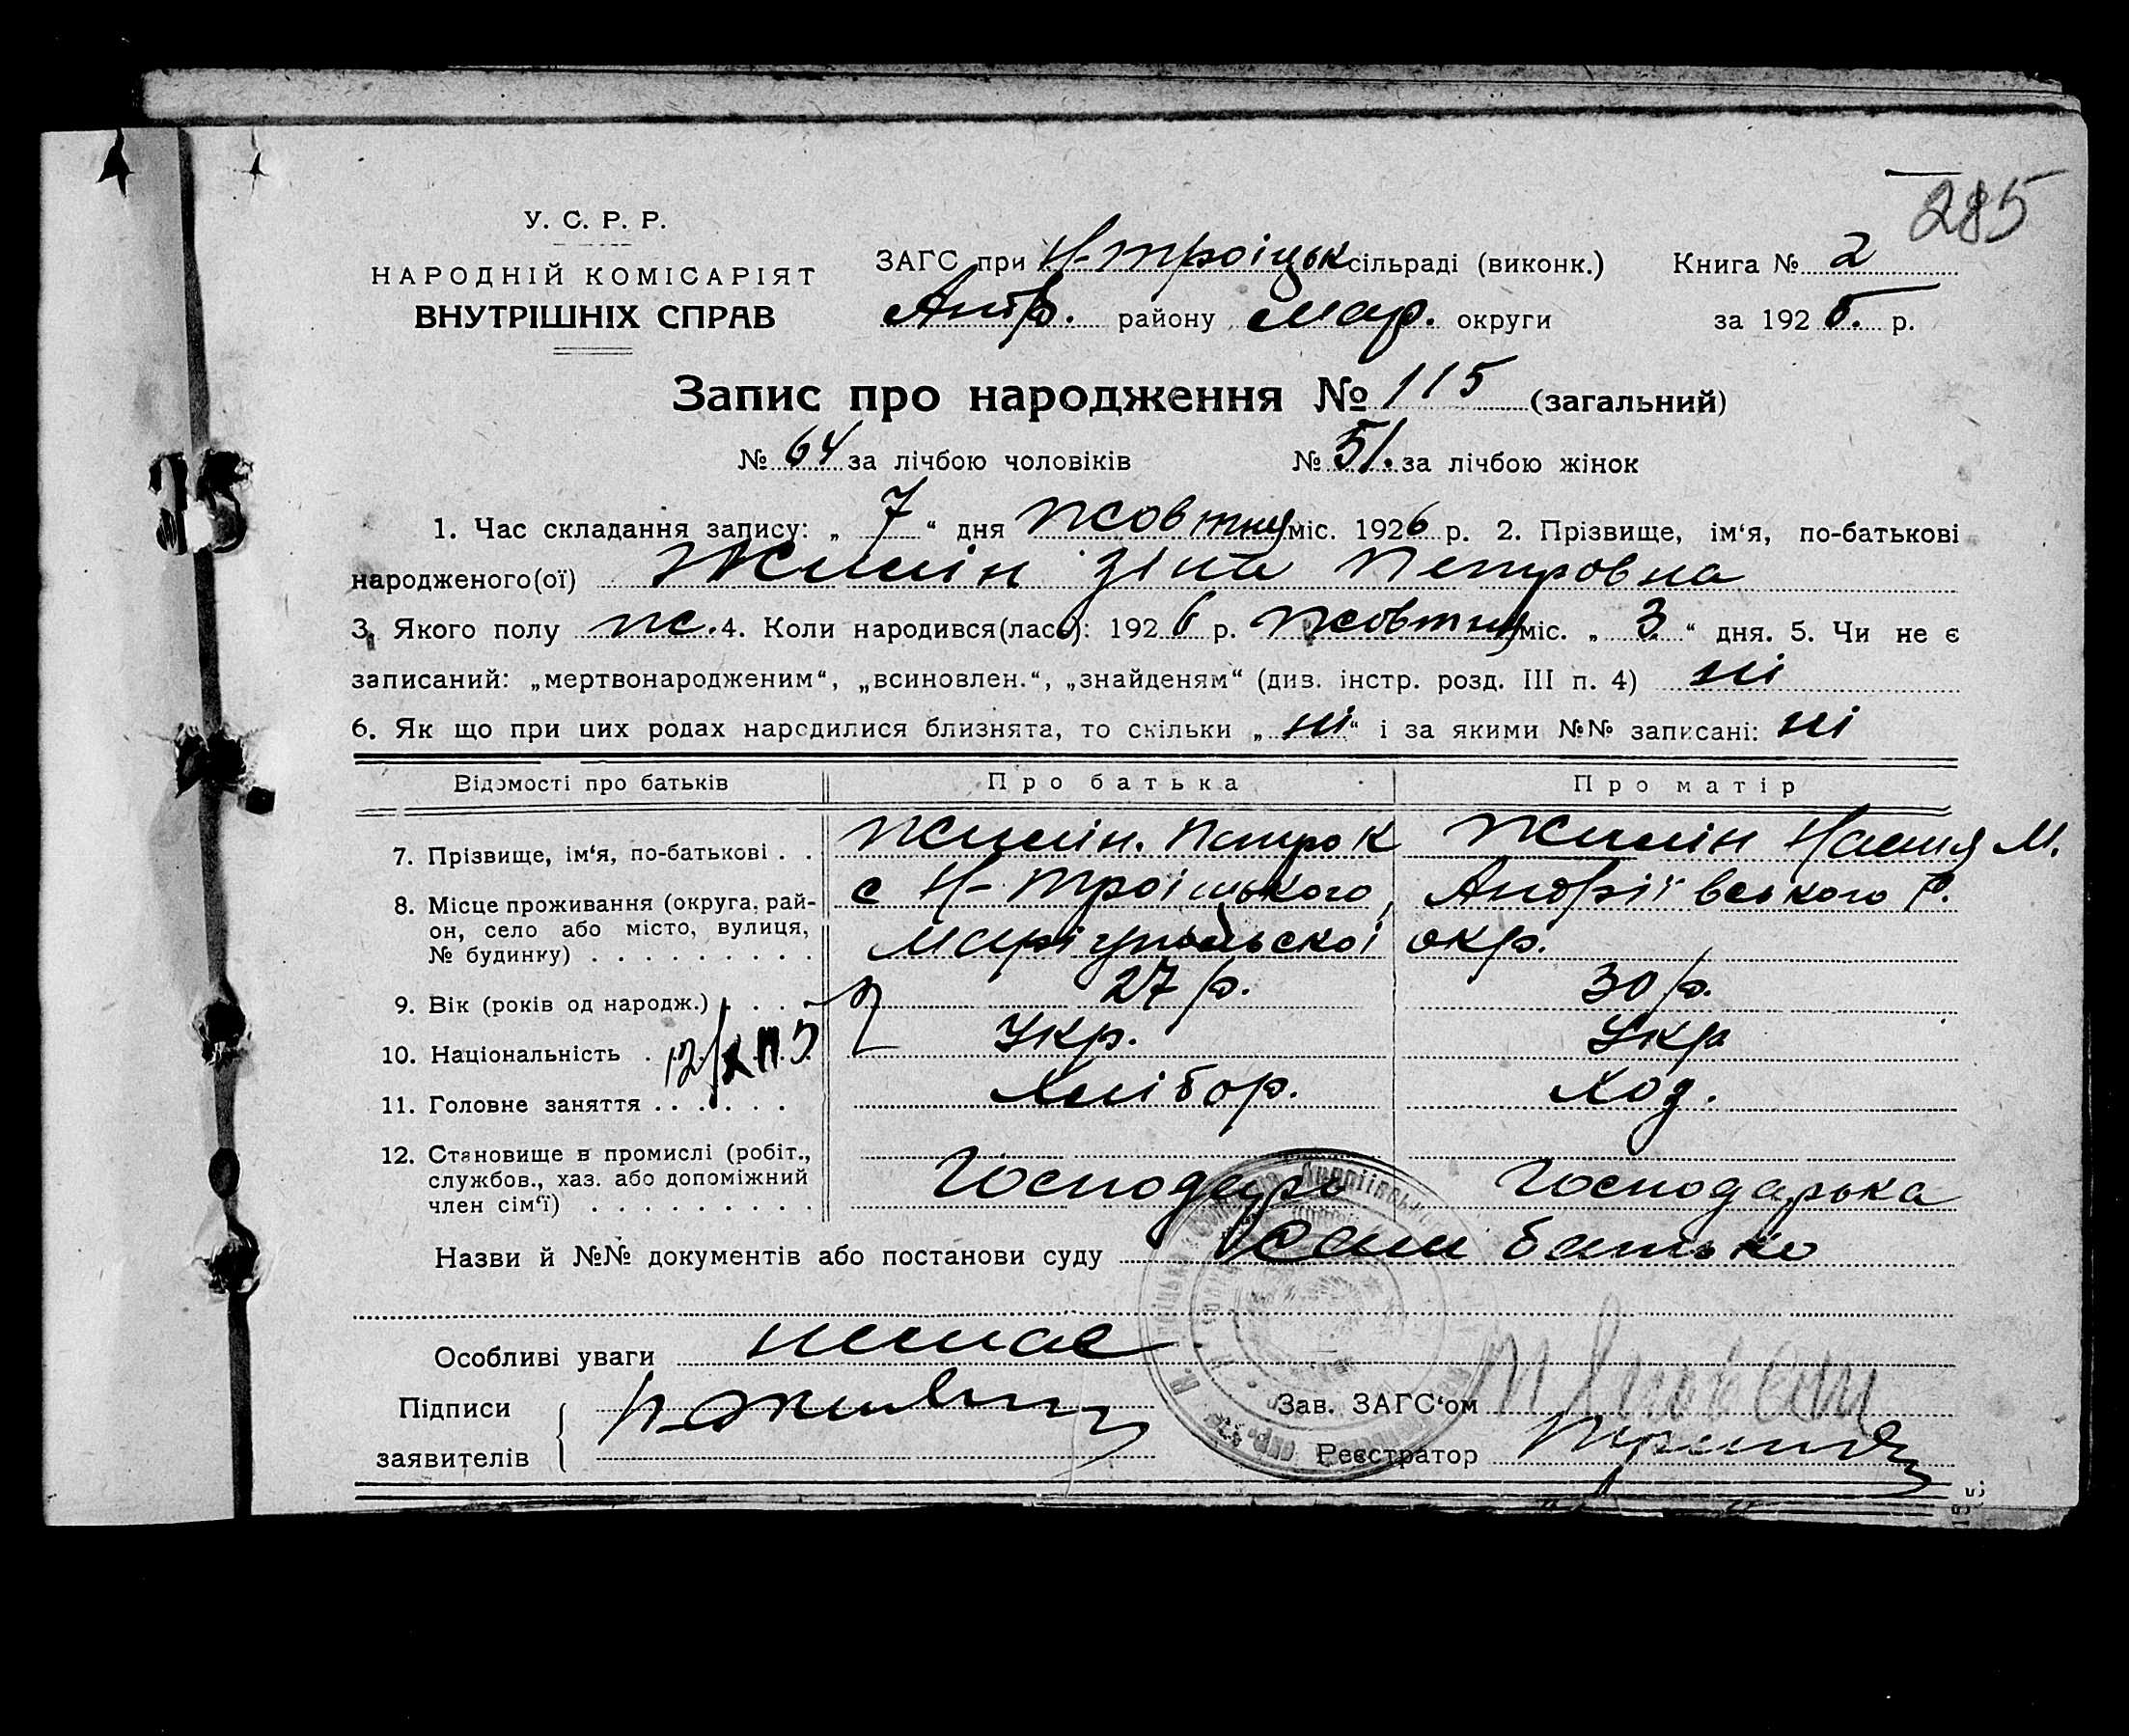 285
У. С. Р. Р.
НАРОДНІЙ КОМІСАРІЯТ
ВНУТРІШНІХ СПРАВ
ЗАГС при Н-Троіцьк сільраді (виконк.)
Андр. району Мар. округи
Книга № 2
за 1926. р.
Запис про народження № 115 (загальний)
№ 64 за лічбою чоловіків № 51. за лічбою жінок
1. Час складання запису: „ 7 “ дня жовтня міс. 1926 р. 2. Прізвище, ім‘я, по-батькові
народженого(ої) Жилін Зіна Петровна
3. Якого полу ж. 4. Коли народився(лась): 1926 р. жовтня міс. „ 3 “ дня. 5. Чи не є
записаний: „мертвонародженим“, „всиновлен.“, „знайденям“ (див. інстр. розд. III п. 4) ні
6. Як що при цих родах народилися близнята, то скільки „ ні “ і за якими №№ записані: ні
Відомості про батьків Про батька Про матір
7. Прізвище, ім‘я, по-батькові . . Жилін. Петро К Жилін Настя М.
8. Місце проживання (округа, рай-
он, село або місто, вулиця,
№ будинку) . . . . . . . . .
с Н-Троіцького, Андріївського р.
Маріупольскоі окр.
9. Вік (років од народж.) . . . . 27 р. 30 р.
10. Національність . Укр. Укр
11. Головне заняття . . . . . . Хлібор. Хоз.
12. Становище в промислі (робіт.,
службов., хаз. або допоміжний
член сім‘ї) . . . . . . . . .
Господарь Господарька
Назви й №№ документів або постанови суду Сам батько
Особливі уваги немає
Підписи
заявителів
Зав. ЗАГС‘ом
Реєстратор